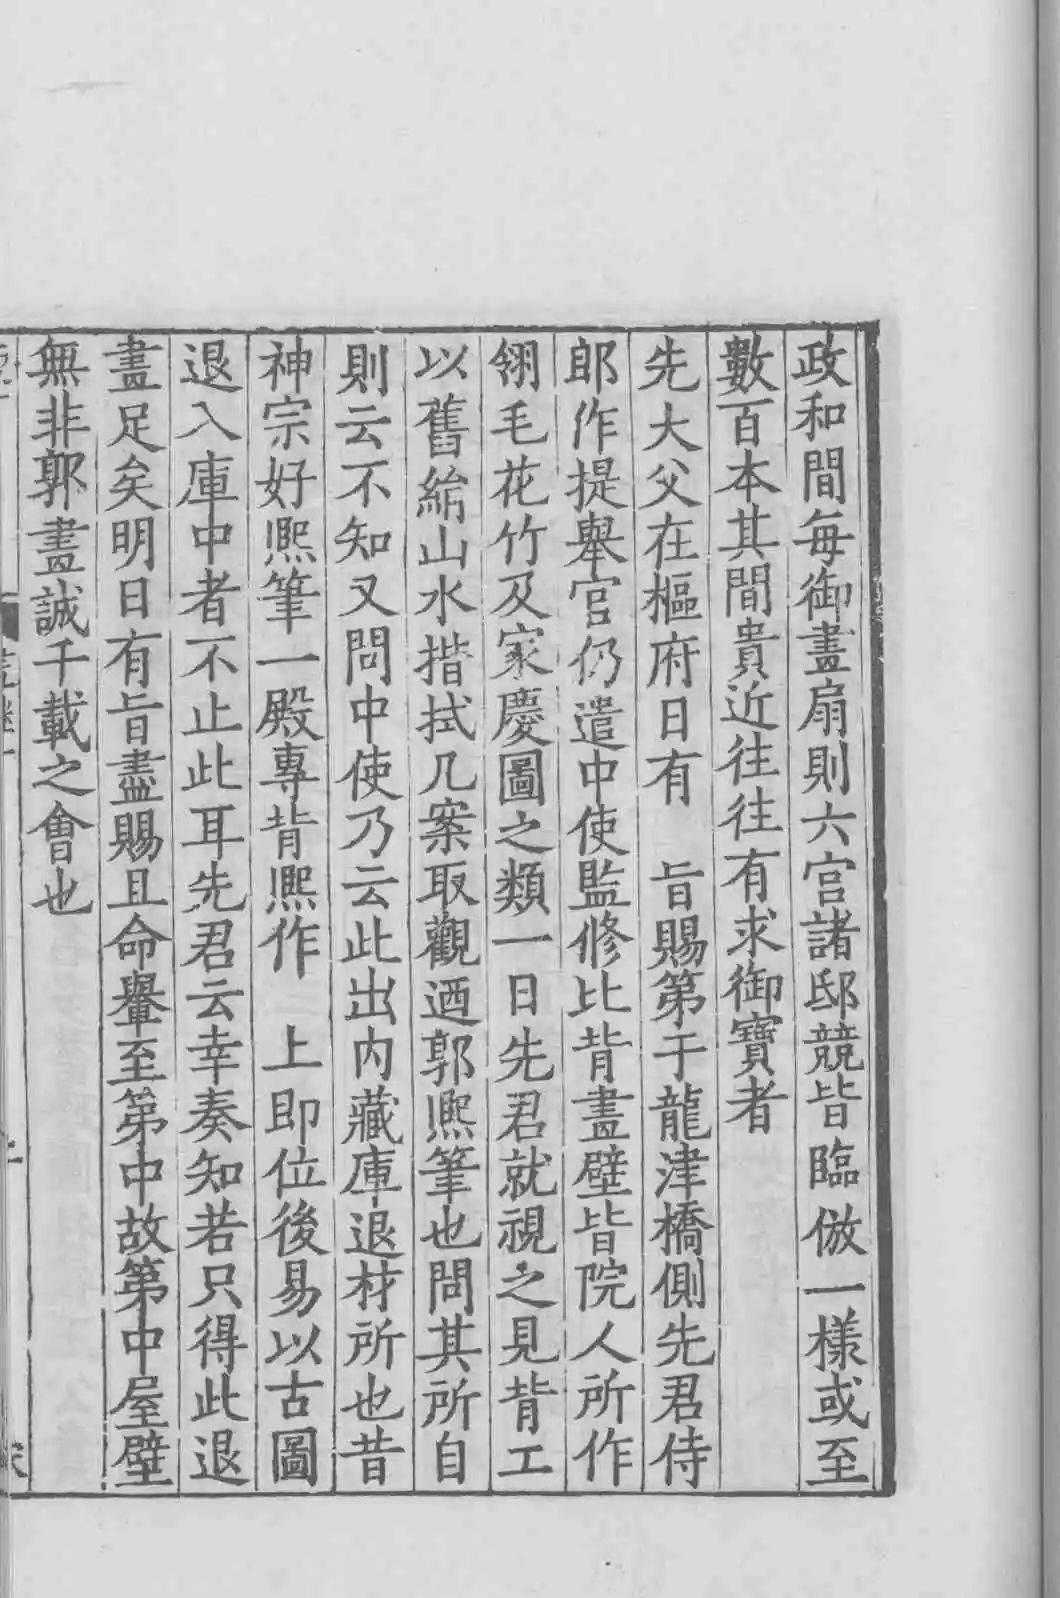 政和間每御畫扇則六宮諸邸競皆臨倣一樣或至
數百本其間貴近往往有求御寶者
先大父在樞府日有　旨賜第于龍津橋側先君侍
郎作提舉官仍遣中使監修比背畫壁皆院人所作
翎毛花竹及家慶圖之類一日先君就視之見背工
以舊絹山水揩拭几案取觀迺郭熙筆也問其所自
則云不知又問中使乃云此出內藏庫退材所也昔
神宗好熙筆一殿專背熙作　上即位後易以古圖
退入庫中者不止此耳先君云幸奏知若只得此退
畫足矣明日有旨盡賜且命轝至第中故第中屋壁
無非郭畫誠千載之會也